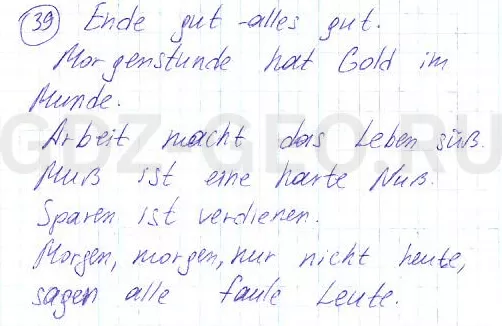 39 Ende gut - alles gut.
Morgenstunde hat Gold im
Munde.
Arbeit macht das Leben süß.
Muß ist eine harte Nuß.
Sparen ist verdienen.
Morgen, morgen, nur nicht heute,
sagen alle faule Leute.
GDZ-GEO.RU